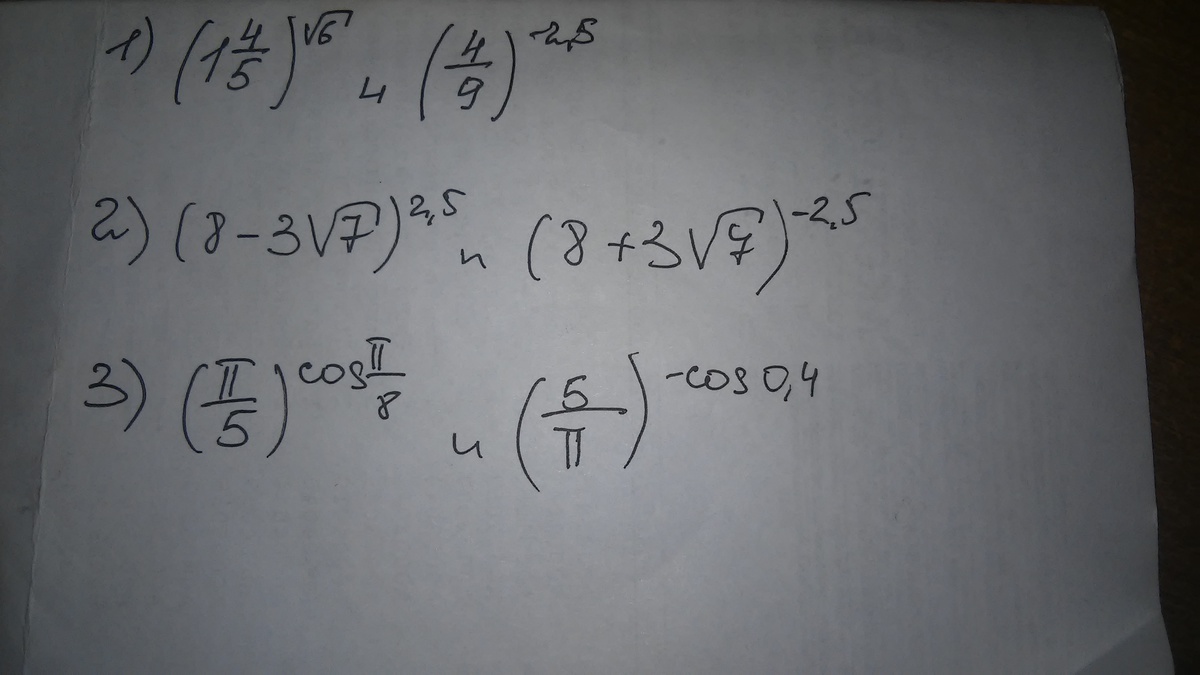 1) (1 4/5)^√6 и (4/9)^-2,5
2) (8-3√7)^2,5 и (8+3√7)^-2,5
3) (π/5)^cos π/8 и (5/π)^-cos 0,4